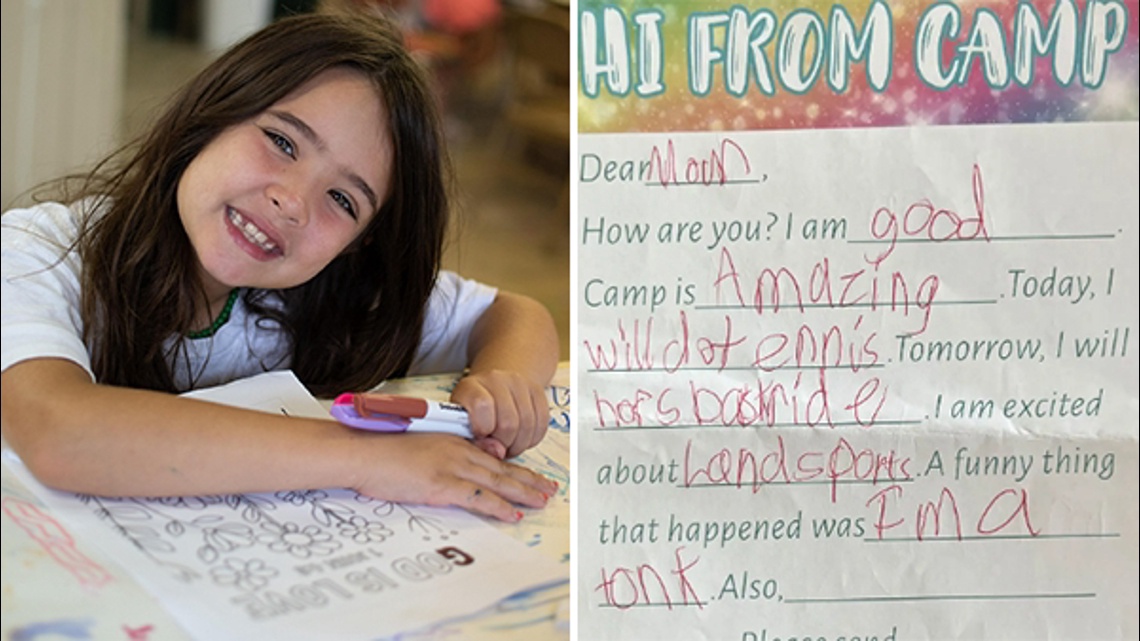 GOD IS LOVE
1 JOHN 4:8
HI FROM CAMP
Dear Mom,
How are you? I am good.
Camp is Amazing. Today, I
will do tennis. Tomorrow, I will
hors bastride. I am excited
about Landsports. A funny thing
that happened was I'm a
tonk. Also,
Please send